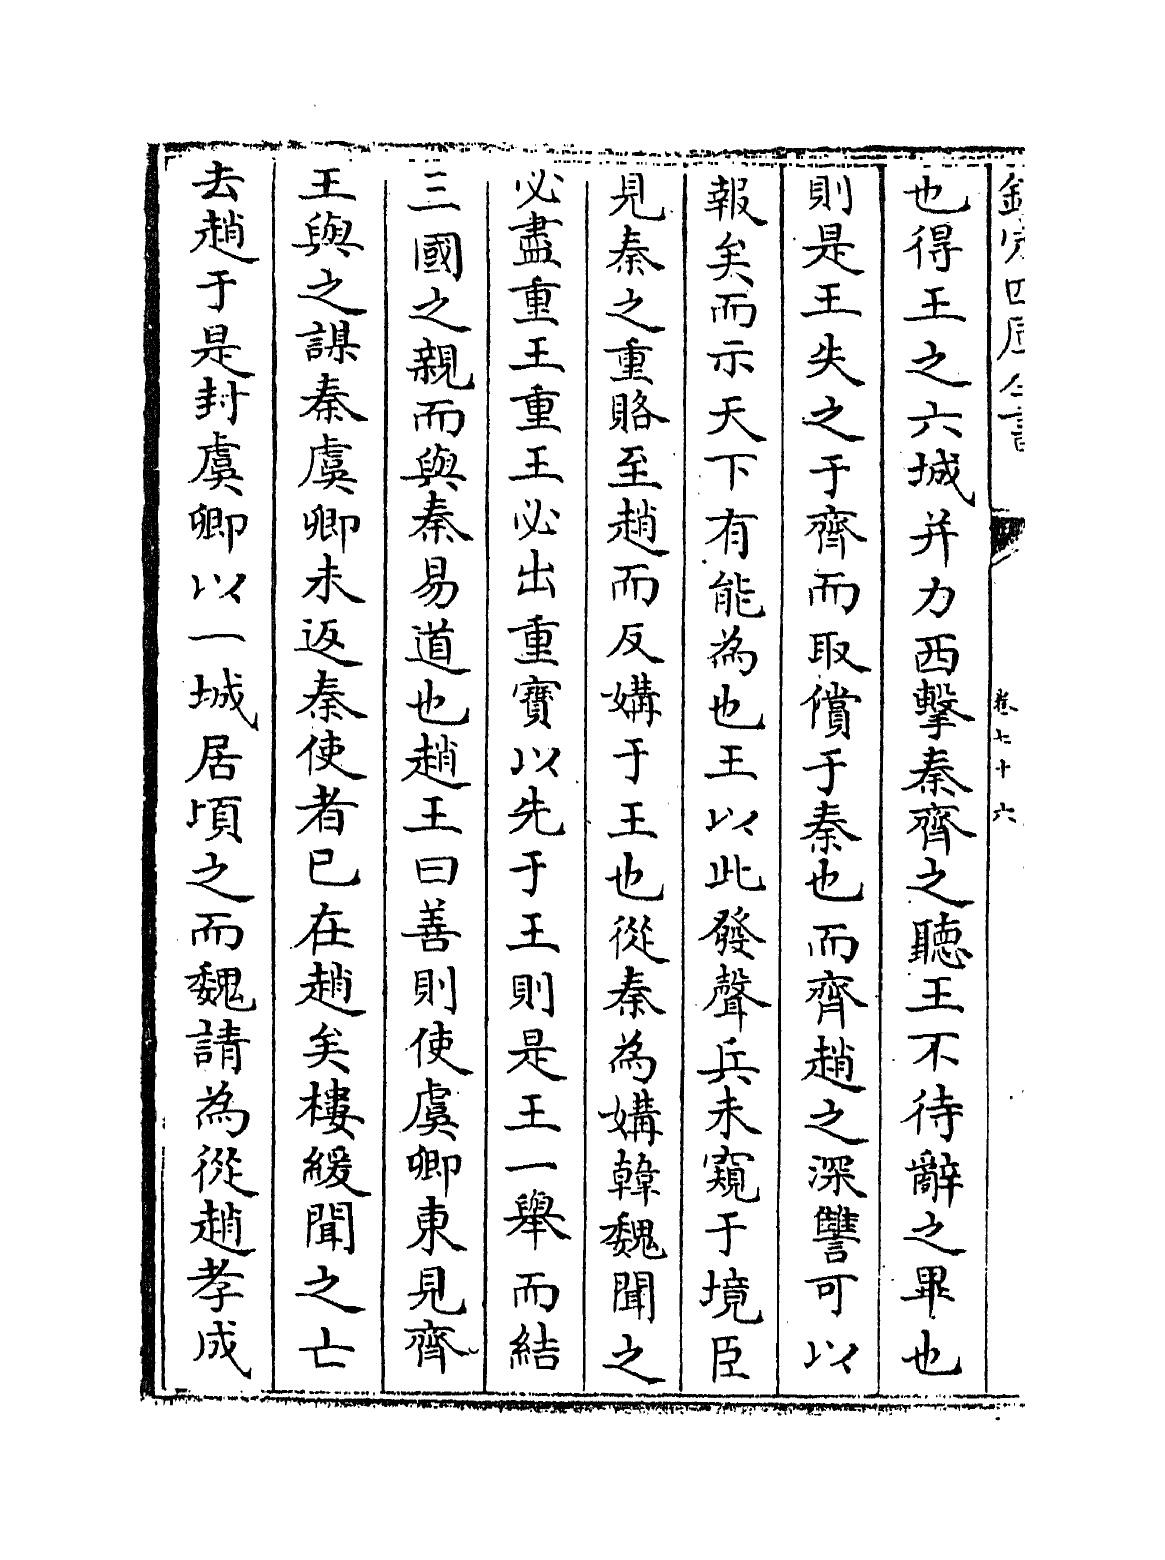 欽定四庫全書
卷七十六
也得王之六城并力西擊秦齊之聽王不待辭之畢也
則是王失之于齊而取償于秦也而齊趙之深讐可以
報矣而示天下有能為也王以此發聲兵未窺于境臣
見秦之重賂至趙而反媾于王也從秦為媾韓魏聞之
必盡重王重王必出重寶以先于王則是王一舉而結
三國之親而與秦易道也趙王曰善則使虞卿東見齊
王與之謀秦虞卿未返秦使者已在趙矣樓緩聞之亡
去趙于是封虞卿以一城居頃之而魏請為從趙孝成